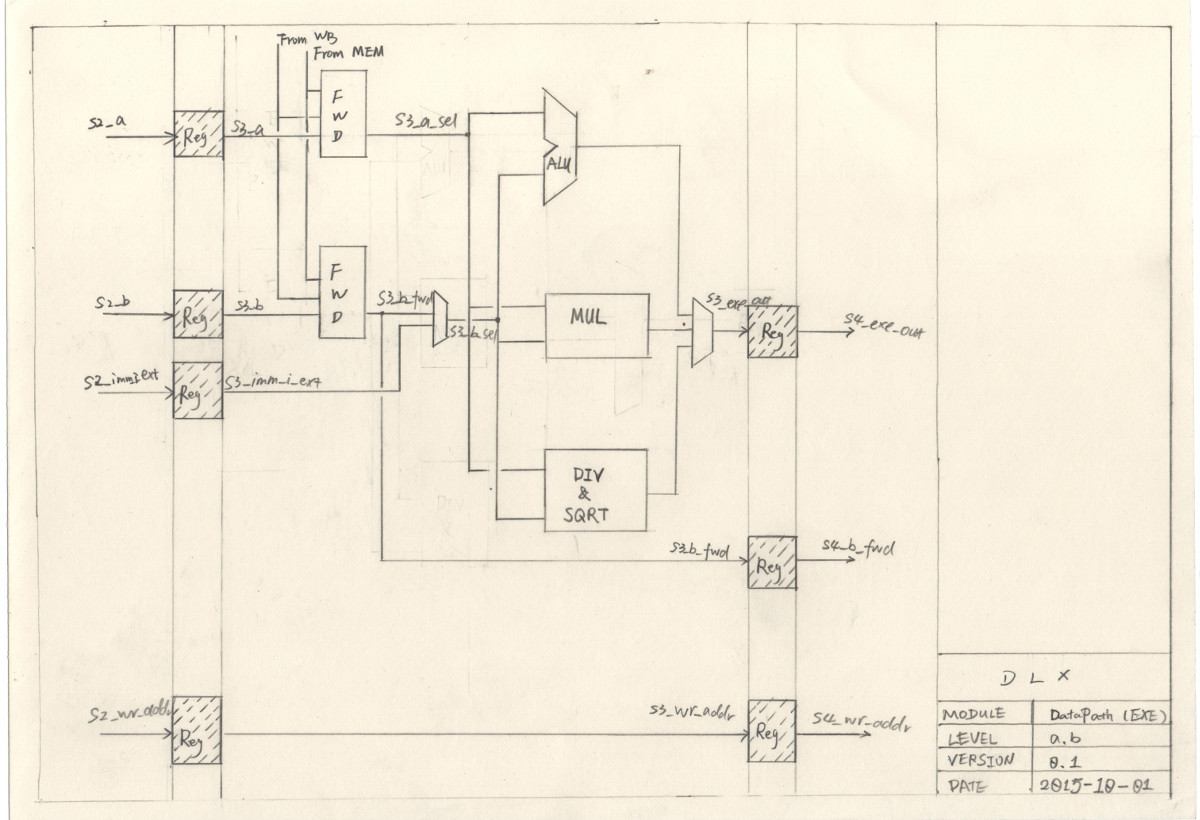 From WB
From MEM
S2_a
Reg
S3_a
F
W
D
S3_a_sel
ALU
S2_b
Reg
S3_b
F
W
D
S3_b_fwd
S3_b_sel
MUL
S3_exe_out
Reg
S4_exe_out
S2_imm_i_ext
Reg
S3_imm_i_ext
DIV
&
SQRT
S3_b_fwd
Reg
S4_b_fwd
S2_wr_addr
Reg
S3_wr_addr
Reg
S4_wr_addr
DLX
MODULE DataPath (EXE)
LEVEL a.b
VERSION 0.1
DATE 2015-10-01